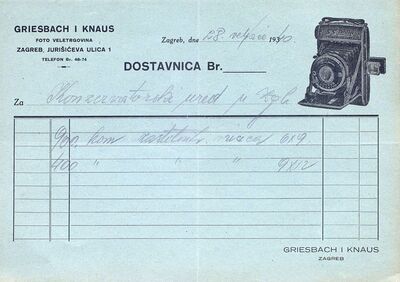 GRIESBACH I KNAUS
FOTO VELETRGOVINA
ZAGREB, JURIŠIĆEVA ULICA 1
TELEFON Br. 46-74
Zagreb, dne 28. veljače 1940.
DOSTAVNICA Br.
Za Konzervatorski ured u Zgb.
900 kom kartotek. vrećica 6x9
400 " " " 9x12
GRIESBACH I KNAUS
ZAGREB